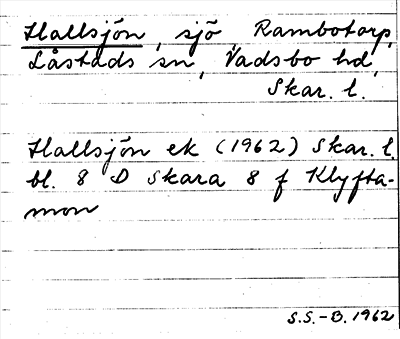 Hallsjön, sjö, Rambotorp,
Låstads sn, Vadsbo hd,
Skar. l.
Hallsjön ek (1962) Skar. l.
bl. 8 D Skara 8 f Klyfta-
mon
S.S.-B. 1962